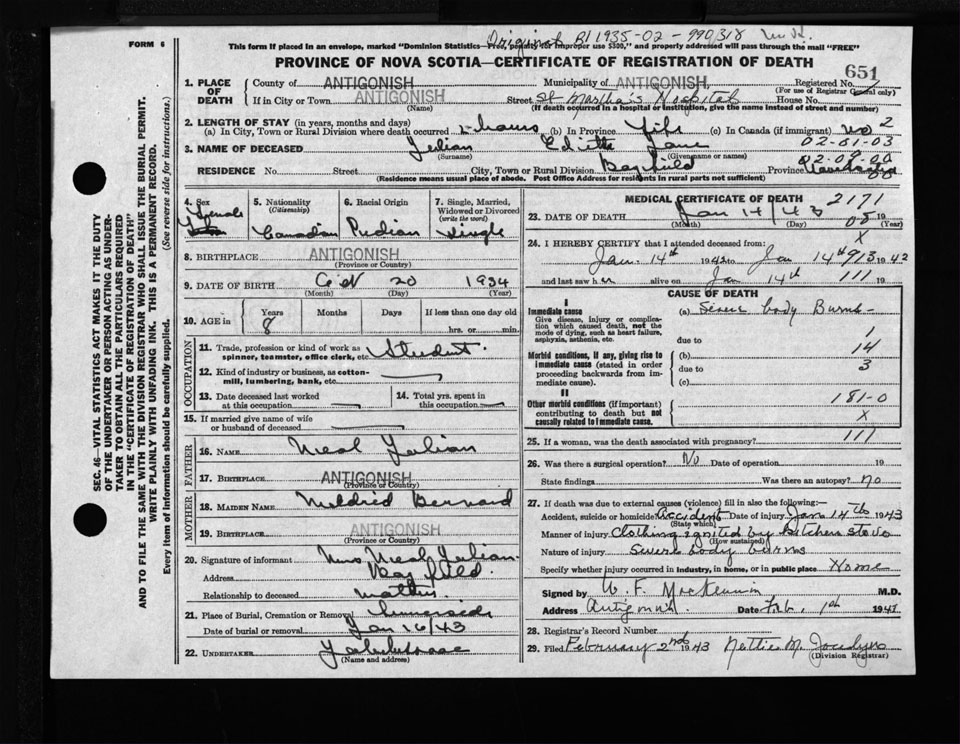 Original RI 1935-02-990318
FORM 6
This form if placed in an envelope, marked "Dominion Statistics—Free, penalty for improper use $300," and properly addressed will pass through the mail "FREE"
PROVINCE OF NOVA SCOTIA—CERTIFICATE OF REGISTRATION OF DEATH
651
1. PLACE OF DEATH
County of ANTIGONISH Municipality of ANTIGONISH Registered No.
(For use of Registrar General only)
If in City or Town ANTIGONISH Street St Martha's Hospital House No.
(Name) (If death occurred in a hospital or institution, give the name instead of street and number)
2. LENGTH OF STAY (in years, months and days)
(a) In City, Town or Rural Division where death occurred 2 hours (b) In Province Life (c) In Canada (if immigrant) no 2
3. NAME OF DECEASED Julian Edith Jane 02-01-03
(Surname) (Given name or names) 02-05-00
RESIDENCE No. Street City, Town or Rural Division Bayfield Province
(Residence means usual place of abode. Post Office Address for residents in rural parts not sufficient)
4. Sex Female
5. Nationality (Citizenship) Canadian
6. Racial Origin Indian
7. Single, Married, Widowed or Divorced (write the word) Single
8. BIRTHPLACE ANTIGONISH
(Province or Country)
9. DATE OF BIRTH Oct 20 1934
(Month) (Day) (Year)
10. AGE in Years Months Days If less than one day old
8 hrs. or min.
OCCUPATION
11. Trade, profession or kind of work as spinner, teamster, office clerk, etc. Student
12. Kind of industry or business, as cotton-mill, lumbering, bank, etc.
13. Date deceased last worked at this occupation
14. Total yrs. spent in this occupation
15. If married give name of wife or husband of deceased
FATHER
16. NAME Neal Julian
17. BIRTHPLACE ANTIGONISH
(Province or Country)
MOTHER
18. MAIDEN NAME Mildred Bernard
19. BIRTHPLACE ANTIGONISH
(Province or Country)
20. Signature of informant Mrs Neal Julian
Address Bayfield
Relationship to deceased Mother
21. Place of Burial, Cremation or Removal Summerside
Date of burial or removal Jan 16/43
22. UNDERTAKER
(Name and address)
MEDICAL CERTIFICATE OF DEATH 2171
23. DATE OF DEATH Jan 14/43 05 19
(Month) (Day) (Year)
24. I HEREBY CERTIFY that I attended deceased from: X
Jan. 14th 1942 to Jan 14th 913 1942
and last saw h er alive on Jan 14th 111 19
CAUSE OF DEATH
I
Immediate cause
Give disease, injury, or complication which caused death, not the mode of dying, such as heart failure, asphyxia, asthenia, etc.
(a) Severe body Burns
due to 1
Morbid conditions, if any, giving rise to immediate cause (stated in order proceeding backwards from immediate cause).
(b) 14
due to 3
(c)
II
Other morbid conditions (if important) contributing to death but not causally related to immediate cause.
181-0
X
25. If a woman, was the death associated with pregnancy? 111
26. Was there a surgical operation? No Date of operation 19
State findings Was there an autopsy? no
27. If death was due to external causes (violence) fill in also the following:—
Accident, suicide or homicide? Accident Date of injury Jan 14th 1943
(State which)
Manner of injury Clothing ignited by kitchen stove
(How sustained)
Nature of injury Severe body burns
Specify whether injury occurred in industry, in home, or in public place Home
Signed by W. F. MacKinnon M.D.
Address Antigonish Date Feb. 1st 194
28. Registrar's Record Number
29. Filed February 2nd 1943 Nettie M.
(Division Registrar)
SEC. 46—VITAL STATISTICS ACT MAKES IT THE DUTY
OF THE UNDERTAKER OR PERSON ACTING AS UNDER-
TAKER TO OBTAIN ALL THE PARTICULARS REQUIRED
IN THE "CERTIFICATE OF REGISTRATION OF DEATH"
AND TO FILE THE SAME WITH THE DIVISION REGISTRAR WHO SHALL ISSUE THE BURIAL PERMIT.
WRITE PLAINLY WITH UNFADING INK. THIS IS A PERMANENT RECORD.
Every item of information should be carefully supplied. (See reverse side for instructions.)